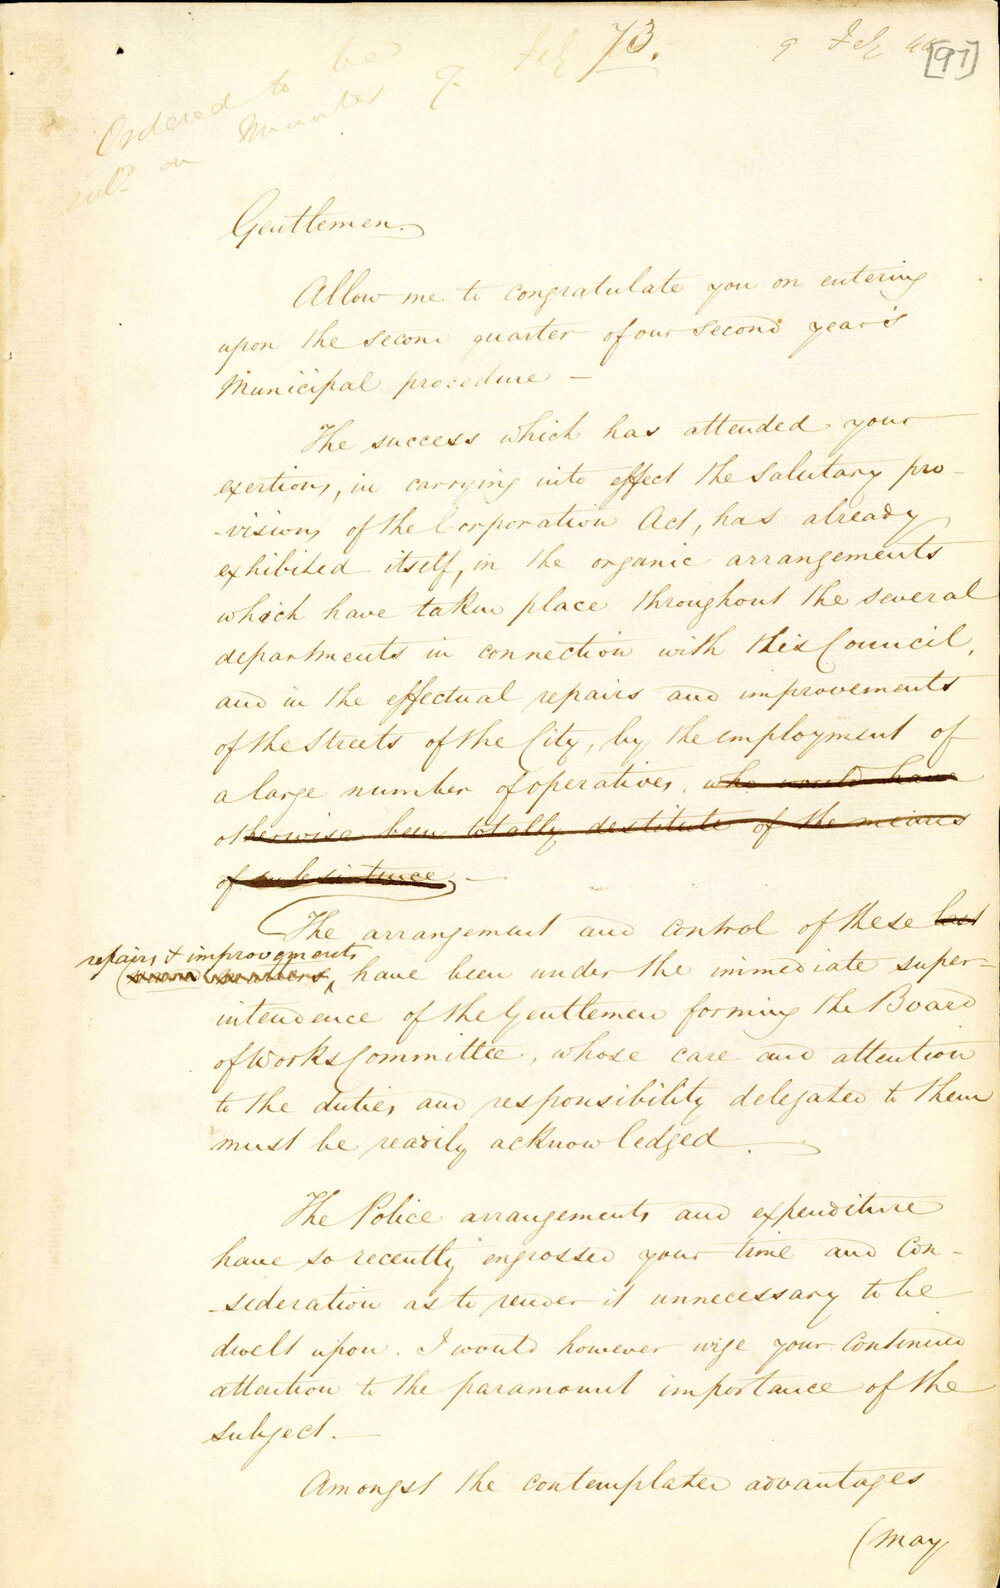 73.
9 Feb 44
[97]
Ordered to be
on Minutes 9 Feb
Gentlemen.
Allow me to congratulate you on entering
upon the second quarter of our second year's
Municipal procedure —
The success which has attended your
exertions, in carrying into effect the salutary pro-
-visions of the Corporation Act, has already
exhibited itself, in the organic arrangements
which have taken place throughout the several
departments in connection with this Council,
and in the effectual repairs and improvements
of the Streets of the City, by the employment of
a large number of operatives, who would have
otherwise been totally destitute of the means
of subsistence, —
The arrangement and control of these last
repairs & improvements
named matters, have been under the immediate super-
intendence of the Gentlemen forming the Board
of Works Committee, whose care and attention
to the duties and responsibility delegated to them
must be readily acknowledged. —
The Police arrangements and expenditure
have so recently engrossed your time and Con-
-sideration as to render it unnecessary to be
dwelt upon. I would however urge your continued
attention to the paramount importance of the
subject. —
Amongst the contemplated advantages
(may